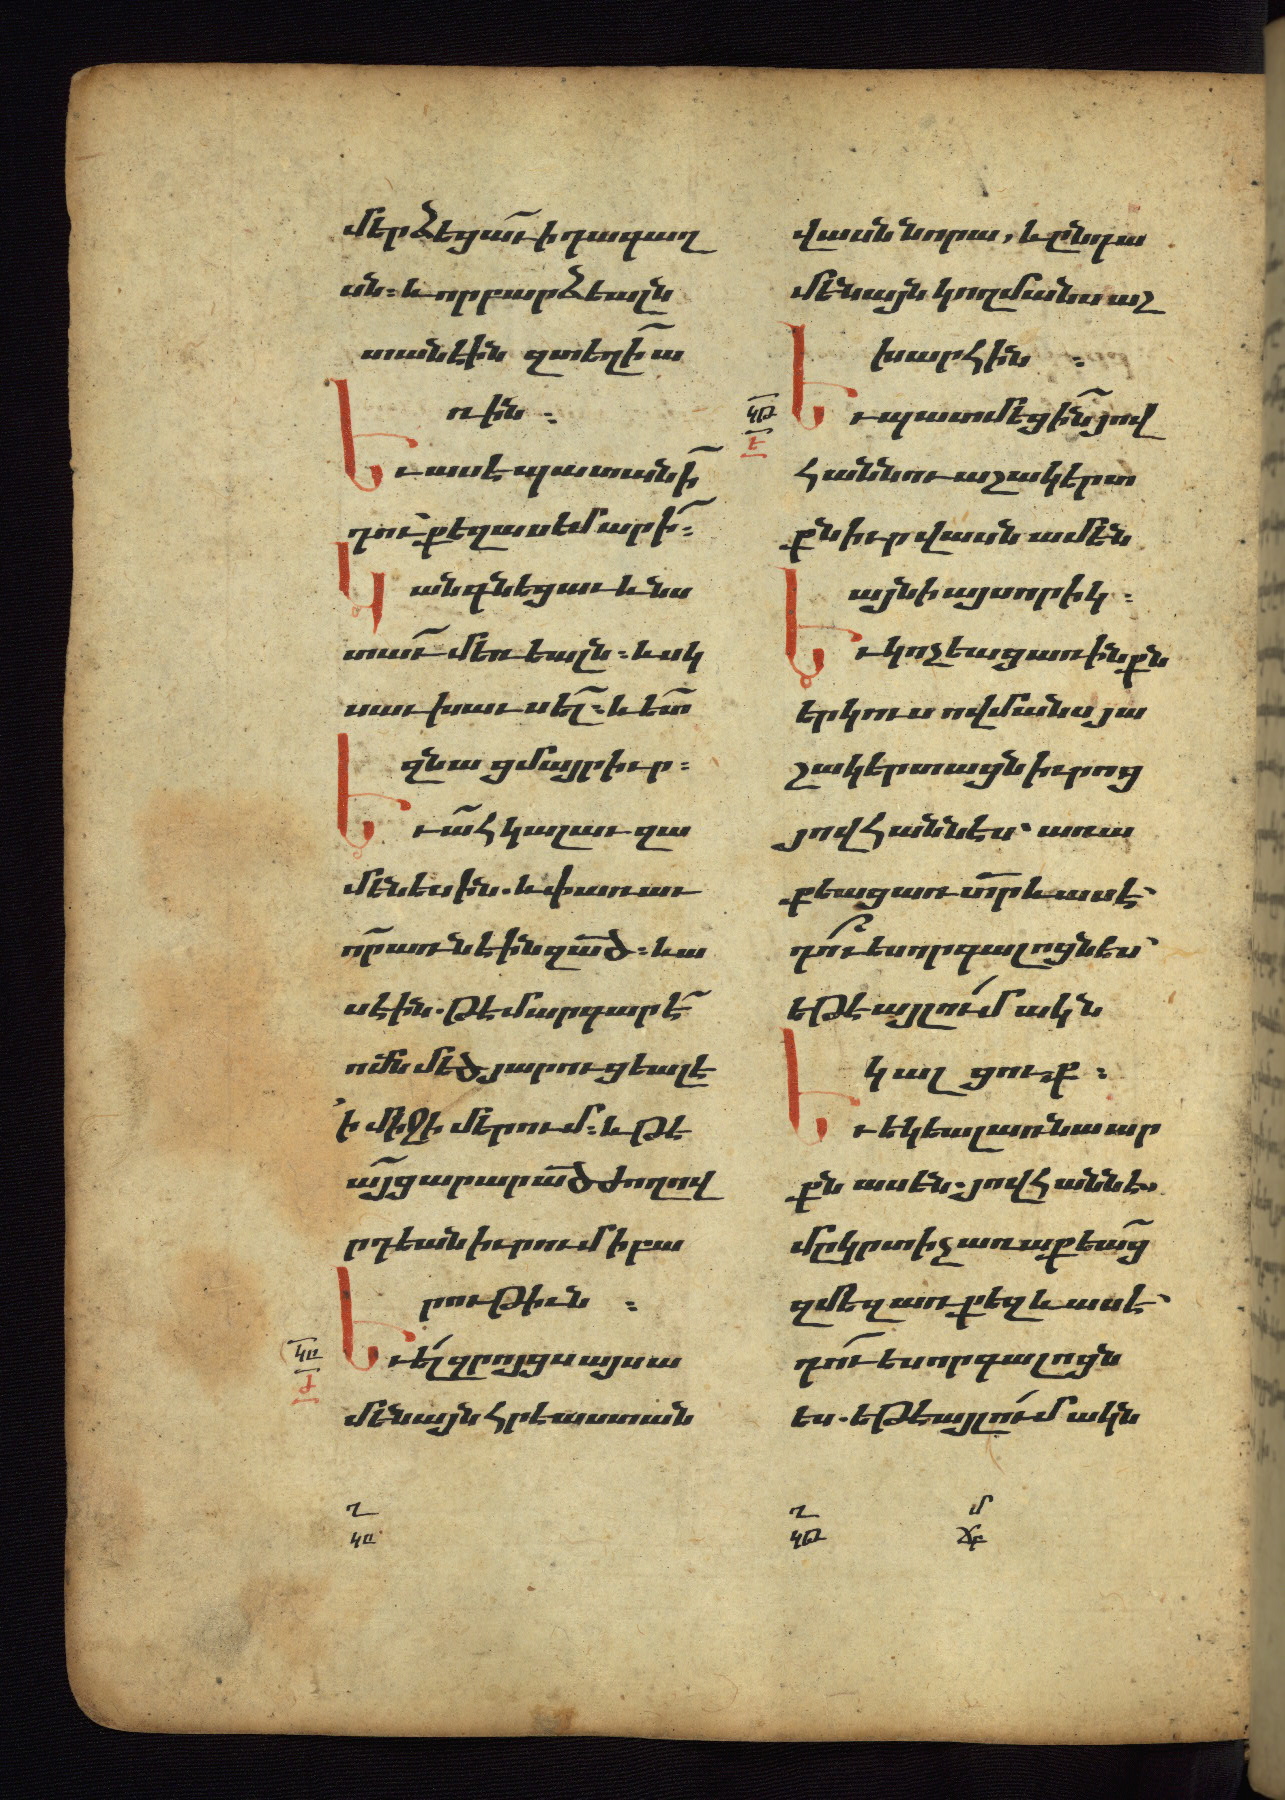 մերձեցաւ ի դագաղ
սն։ և որ բարձեալն
տանէին զտեղի ա
ռին։
Եւ ասէ պատանի
դու քեզ ասեմ արի։
Նա անդ նեցաւ և նս
տաւ մեռեալն։ և սկ
սաւ խաւսել։ և ետ
զնա ց մայր իւր։
Եւ ահ կալաւ զա
մենեսին. և փառաւ
որառնէին զած։ և ա
սէին. թէ մարգարէ
ոմն մեծ յարուցեալ է
ի միջի մերում։ և թէ
այց արար ած ժողով
րդեան իւրում ի բա
րութիւն։
Եւ ել զրոյցս այս ա
մենայն հրեաստան
վասն նորա, և ընդ ա
մենայն կողմանս աշ
խարհին։
Եւ պատմեցին յով
հաննու աշակերտ
քն իւր վասն ամեն
այնի այսորիկ։
Եւ կոչեաց առ ինքն
երկուս ովմանս յա
շակերտացն իւրոց
յովհաննէս՝ առա
քեաց առ տր և ասէ՝
դու ես որ գալոցն ես՝
եթէ այլում ակն
կալցուք։
Եւ եկեալ առ նա ար
քն ասեն. յովհաննէս
մըկրտիչ առաքեաց
զմեզ առ քեզ և ասէ՝
դու ես որ գալոցն
ես. եթէ այլում ակն
կը
Ժ
կթ
Է
ղ
կը
ղ
կթ
մ
ճբ